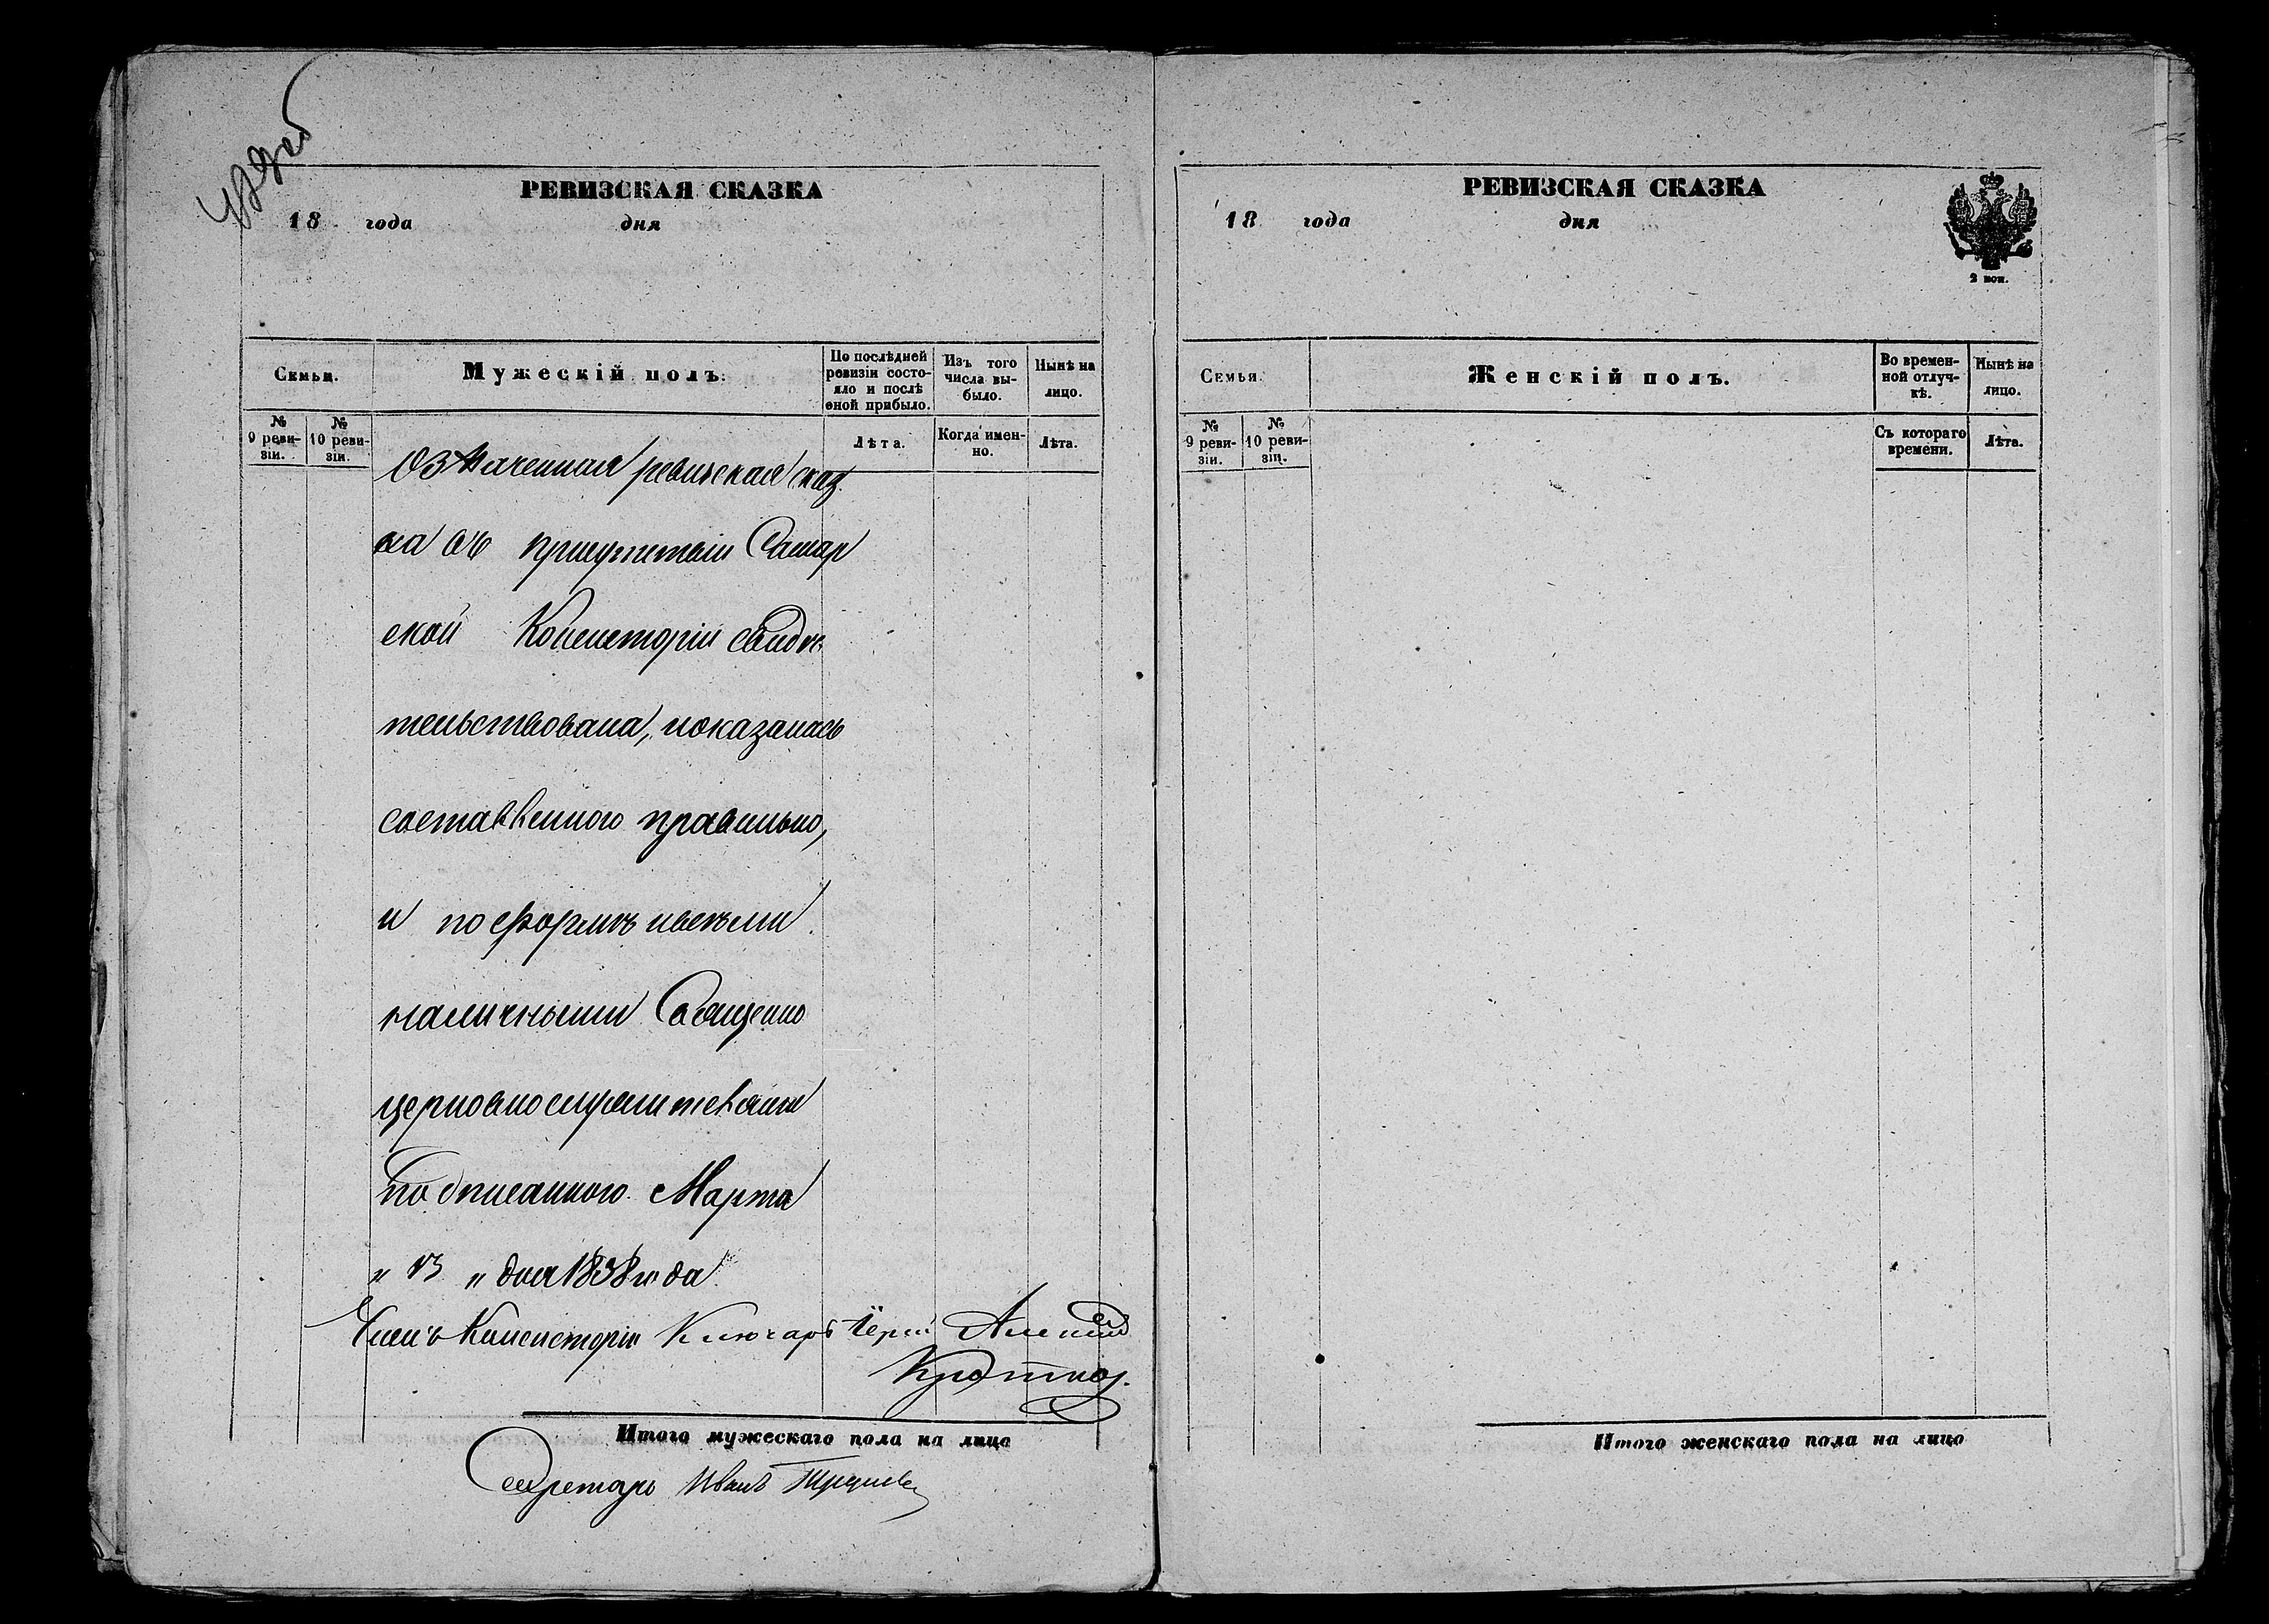 РЕВИЗСКАЯ СКАЗКА
18 года дня
Семьи.
Мужескій полъ.
По послѣдней ревизіи состояло и послѣ оной прибыло.
Изъ того числа выбыло.
Нынѣ на лицо.
№ 9 ревизіи.
№ 10 ревизіи.
Лѣта.
Когда именно.
Лѣта.
Означенная ревизская сказ
ка въ присутствіи Самар
ской Консисторіи свидѣ
тельствована, показалась
составленною правильно,
и по формѣ и всѣми
наличными Священно
церковнослужителями
подписанною. Марта
" 13 " дня 1858 года
Членъ Консисторіи Ключарь Іерей Алексій
Итого мужескаго пола на лицо
Секретарь Иванъ
РЕВИЗСКАЯ СКАЗКА
18 года дня
2 коп.
Семья.
Женскій полъ.
Во временной отлучкѣ.
Нынѣ на лицо.
№ 9 ревизіи.
№ 10 ревизіи.
Съ котораго времени.
Лѣта.
Итого женскаго пола на лицо